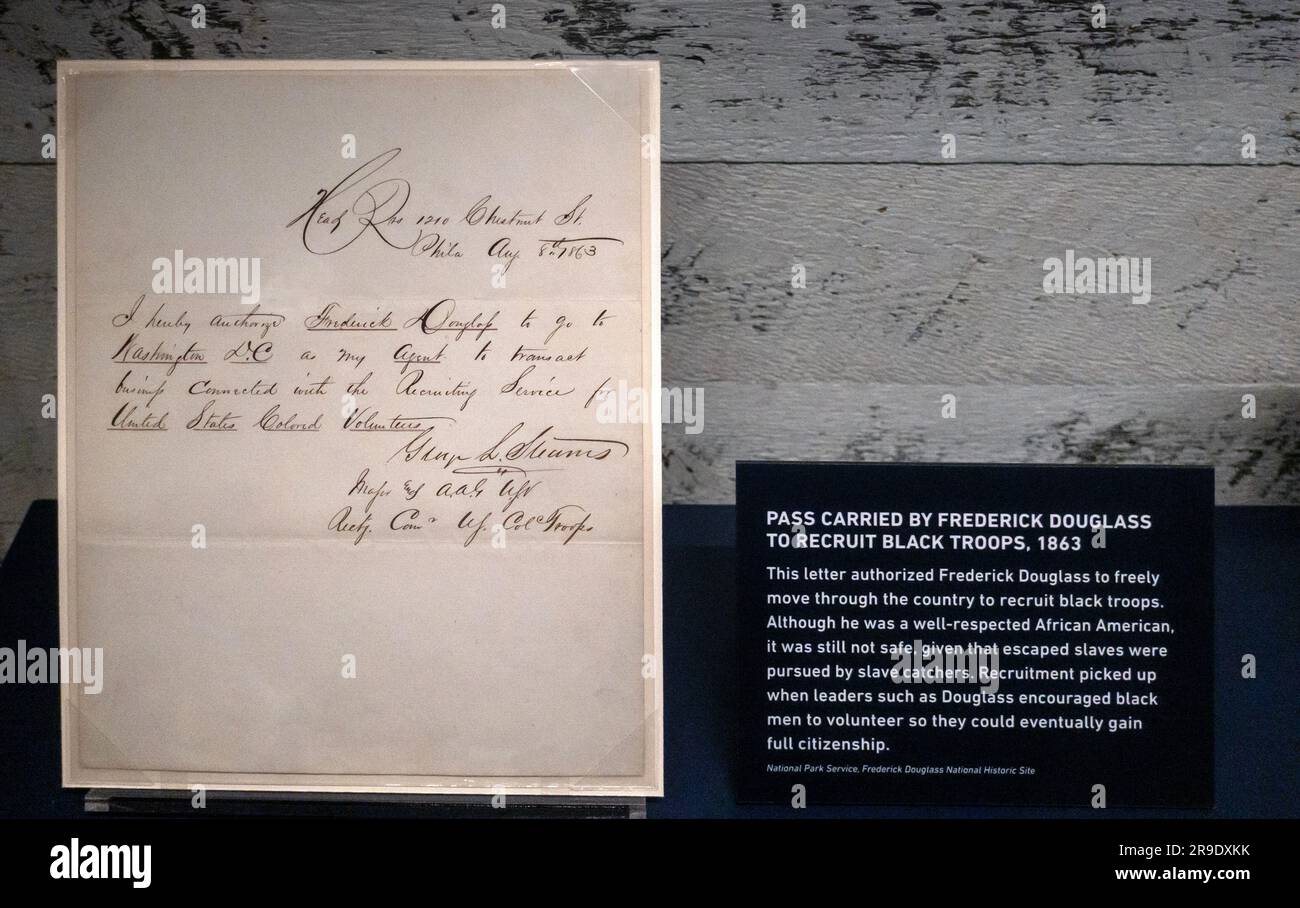 Head Qrs 1210 Chestnut St.
Phila Aug 8th 1863
I hereby authorize Frederick Douglass to go to
Washington D.C as my Agent to transact
business connected with the Recruiting Service for
United States Colored Volunteers
George L. Stearns
Major and A.A.G U.S.V
Recty. Comr U.S. Cold Troops
PASS CARRIED BY FREDERICK DOUGLASS
TO RECRUIT BLACK TROOPS, 1863
This letter authorized Frederick Douglass to freely
move through the country to recruit black troops.
Although he was a well-respected African American,
it was still not safe, given that escaped slaves were
pursued by slave catchers. Recruitment picked up
when leaders such as Douglass encouraged black
men to volunteer so they could eventually gain
full citizenship.
National Park Service, Frederick Douglass National Historic Site
alamy
alamy
alamy
alamy
alamy
Image ID: 2R9DXKK
www.alamy.com